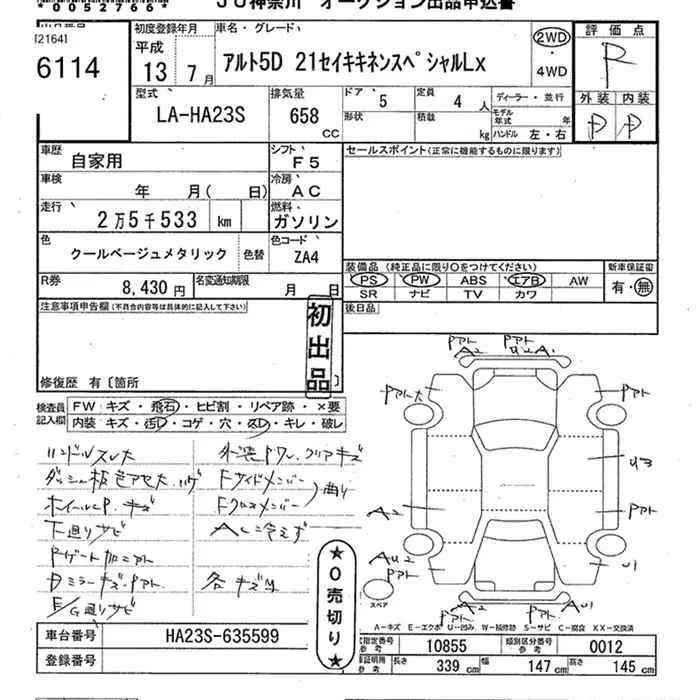 *0052766*
JU神奈川 オークション出品申込書
出品番号
[2164]
6114
初度登録年月
平成
13 7月
車名・グレード
アルト5D 21セイキキネンスペシャルLx
2WD
・
4WD
評価点
R
型式
LA-HA23S
排気量
658
CC
ドア
5
定員
4 人
形状
積載
kg
ディーラー・並行
モデル年式 年
ハンドル 左・右
外装 内装
D D
車歴
自家用
シフト
F5
セールスポイント(正常に機能するものに限ります)
車検
年 月( 日)
冷房
AC
走行
2万5千533 km
燃料
ガソリン
色
クールベージュメタリック
色替
色コード
ZA4
装備品 (純正品に限り○をつけてください)
PS PW ABS エアB AW
SR ナビ TV カワ
新車保証書
有・無
R券
8,430円
名変通知期限
月 日
後日品
注意事項申告欄(不具合内容等は具体的に記入して下さい)
初出品
修復歴 有〔箇所 〕
検査員記入欄
FW キズ・飛石・ヒビ割・リペア跡・×要
内装 キズ・汚レ・コゲ・穴・スレ・キレ・破レ
ハンドルスレ大
ホイールC.P.キズ
下廻りサビ
Rゲート加ニアト
Dミラーキズ.Pアト.
E/G廻りサビ
Fサイドメンバー
Fクロスメンバー
曲り
AC冷えず
各キズ凹
★0売切り★
Pアト
A2
Pアト
A1
Pアト大
Pアト
U3
A2
Pアト
AU2
Pアト
U1
A2
Pアト
AU1
スペア
A-キズ E-エクボ U-凹み W-補修跡 S-サビ C-腐食 XX-交換済
車台番号
HA23S-635599
登録番号
10855
類別区分番号
参考
0012
長さ 339 cm
幅 147 cm
高さ 145 cm